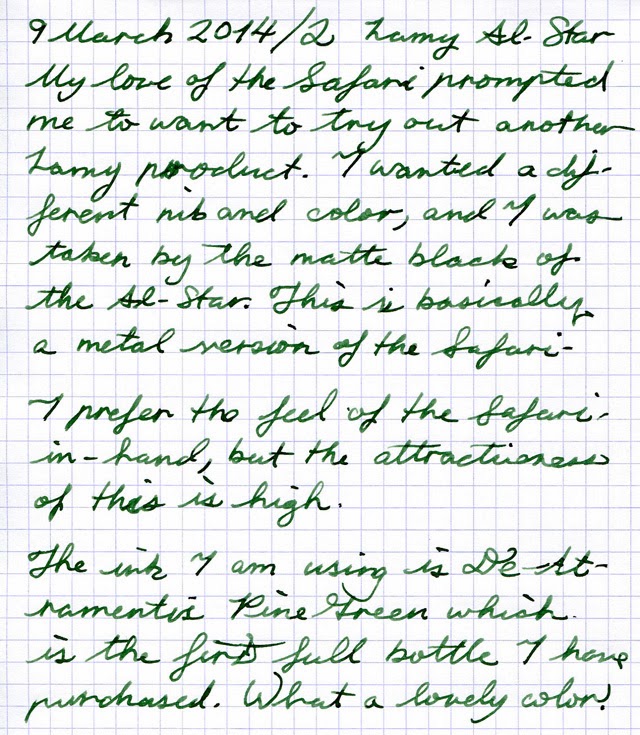 9 March 2014/2 Lamy Al-Star
My love of the Safari prompted
me to want to try out another
Lamy product. I wanted a dif-
ferent nib and color, and I was
taken by the matte black of
the Al-Star. This is basically
a metal version of the Safari-
I prefer the feel of the Safari-
in-hand, but the attractiveness
of this is high.
The ink I am using is De At-
ramentis Pine Green which
is the first full bottle I have
purchased. What a lovely color!